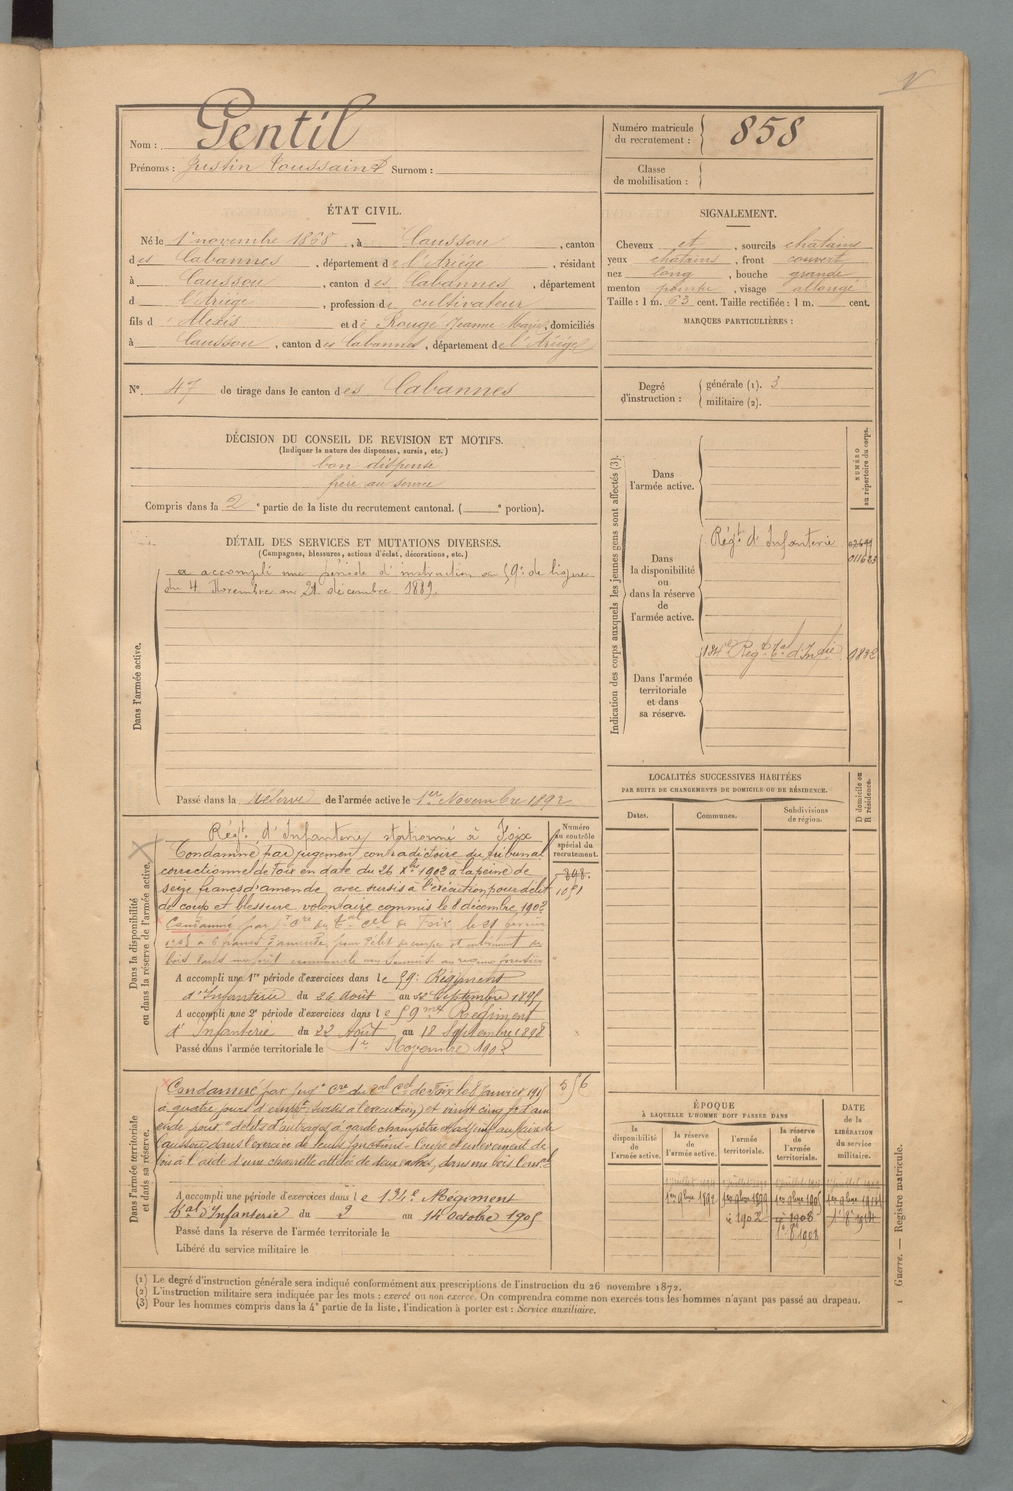 Nom : Gentil
Prénoms : Justin Toussaint Surnom :
Numéro matricule du recrutement : 858
Classe de mobilisation :
ÉTAT CIVIL.
Né le 1er novembre 1868, à Caussou, canton
des Cabannes, département de l'Ariége, résidant
à Caussou, canton des Cabannes, département
d l'Ariege, profession de cultivateur
fils d'Alexis et de Rougé Jeanne Marie, domiciliés
à Caussou, canton des Cabannes, département de l'Ariége
SIGNALEMENT.
Cheveux et, sourcils chatains
yeux chatains, front couvert
nez long, bouche grande
menton pointu, visage allongé
Taille : 1 m. 63 cent. Taille rectifiée : 1 m. cent.
MARQUES PARTICULIÈRES :
N° 47 de tirage dans le canton des Cabannes
Degré d'instruction : générale (1). 3
militaire (2).
DÉCISION DU CONSEIL DE REVISION ET MOTIFS.
(Indiquer la nature des dispenses, sursis, etc.)
bon dispensé
frère au service
Compris dans la 2e partie de la liste du recrutement cantonal. ( e portion).
DÉTAIL DES SERVICES ET MUTATIONS DIVERSES.
(Campagnes, blessures, actions d'éclat, décorations, etc.)
Dans l'armée active.
a accompli une période d'instruction au 59e de ligne
du 4 Novembre au 21 décembre 1889.
Passé dans la réserve de l'armée active le 1er Novembre 1892
Indication des corps auxquels les jeunes gens sont affectés (3).
NUMÉRO au répertoire du corps.
Dans l'armée active.
Dans la disponibilité ou dans la réserve de l'armée active.
Régt d'Infanterie
Dans l'armée territoriale et dans sa réserve.
134e Régt tal d'Infie
LOCALITÉS SUCCESSIVES HABITÉES
PAR SUITE DE CHANGEMENTS DE DOMICILE OU DE RÉSIDENCE.
D domicile ou R résidence.
Dates. Communes. Subdivisions de région.
Dans la disponibilité ou dans la réserve de l'armée active.
Numéro au contrôle spécial du recrutement.
898.
1051
Régt d'Infanterie stationné à Foix
Condamné par jugement contradictoire du tribunal
correctionnel de Foix en date du 26 Xbre 1902 à la peine de
seize francs d'amende, avec sursis à l'exécution, pour délit
de coup et blessure volontaire commis le 8 décembre 1902
Condamné par
A accompli une 1re période d'exercices dans le 59e Régiment
d'Infanterie du 26 Août au Septembre 1895
A accompli une 2e période d'exercices dans le 59me Régiment
d'Infanterie du 22 Août au 18 Septembre 1898
Passé dans l'armée territoriale le 1er Novembre 1902
Dans l'armée territoriale et dans sa réserve.
556
Condamné par jugt Cre du tal Cel de Foix le 8 Janvier 1905
à quatre jours d'empt (sursis à l'execution) et vingt cinq fr d'am
ende pour: délits d'outrages à garde champêtre et adjoint au Maire de
Caussou dans l'exercice de leurs fonctions - Coupe et enlèvement de
bois à l'aide d'une charrette attelée de deux vaches, dans un bois
A accompli une période d'exercices dans le 134e Régiment
tal d'Infanterie du 2 au 14 Octobre 1905
Passé dans la réserve de l'armée territoriale le
Libéré du service militaire le
ÉPOQUE
À LAQUELLE L'HOMME DOIT PASSER DANS
DATE de la LIBÉRATION du service militaire.
la disponibilité de l'armée active. la réserve de l'armée active. l'armée territoriale. la réserve de l'armée territoriale.
1er 9bre 1892 1er 9bre 1899 1er 9bre 1905 1er 9bre 1914
1902 1908
(1) Le degré d'instruction générale sera indiqué conformément aux prescriptions de l'instruction du 26 novembre 1872.
(2) L'instruction militaire sera indiquée par les mots : exercé ou non exercé. On comprendra comme non exercés tous les hommes n'ayant pas passé au drapeau.
(3) Pour les hommes compris dans la 4e partie de la liste, l'indication à porter est : Service auxiliaire.
Guerre. — Registre matricule.